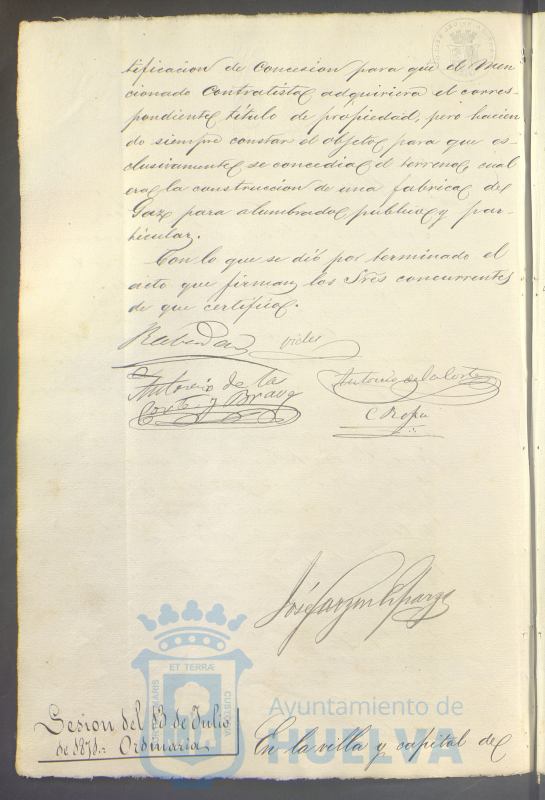 tificacion de Concesion para que el Men
cionado Contratista adquiriera el corres-
pondiente título de propiedad, pero hacien
do siempre constar el objeto para que es-
clusivamente se concedia el terreno, cual
era la construccion de una fabrica de
Gaz para alumbrado publico y par-
ticular.
Con lo que se dió por terminado el
acto que firman los Sres concurrentes
de que certifico.
Antonio de la
Corte y Bravo
Antonio de la Corte
José Garzon
ET TERRÆ
CUSTODIA
Ayuntamiento de
HUELVA
Sesion del 13 de Julio
de 1871. Ordinaria
En la villa y capital de